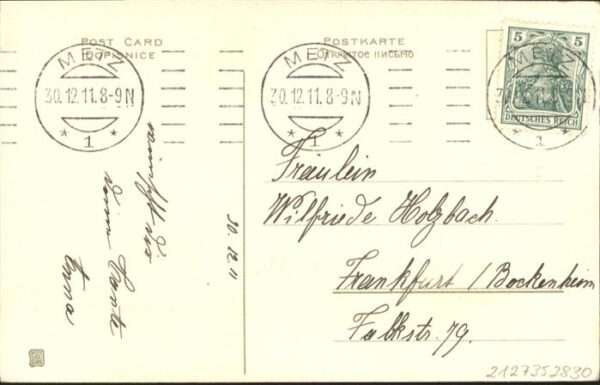 POST CARD
DOPISNICE
POSTKARTE
ОТКРЫТОЕ ПИСЬМО
METZ
30.12.11.8-9N
* 1 *
METZ
30.12.11.8-9N
* 1 *
5 5
DEUTSCHES REICH
METZ
1
wünscht dir
deine Tante
Erna
30. 12. 11
Fräulein
Wilfriede Holzbach.
Frankfurt / Bockenheim
Falkstr. 79.
2127352830